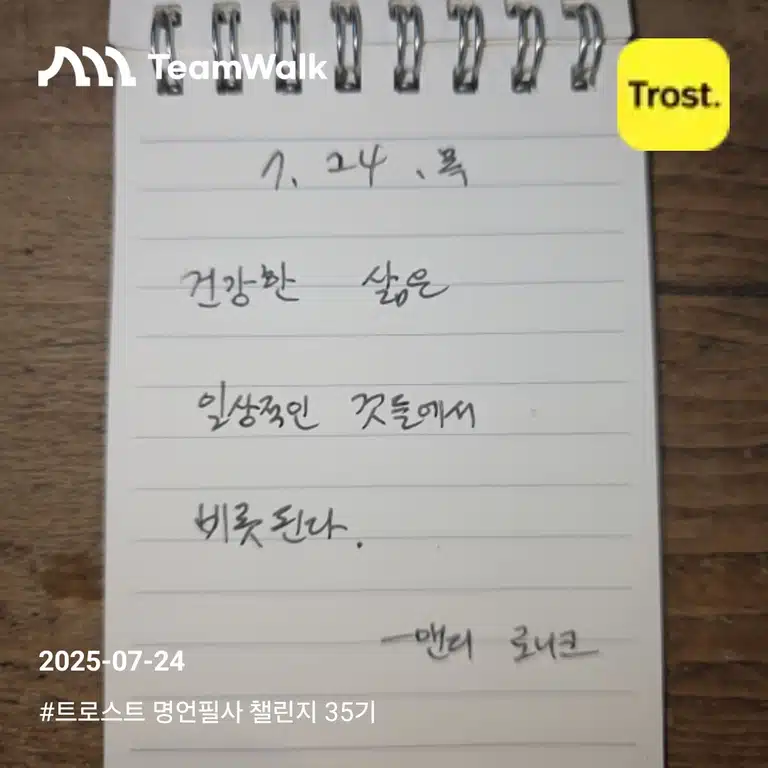 TeamWalk
Trost.
7. 24. 목
건강한 삶은
일상적인 것들에서
비롯된다.
-맨디 로니크
2025-07-24
#트로스트 명언필사 챌린지 35기